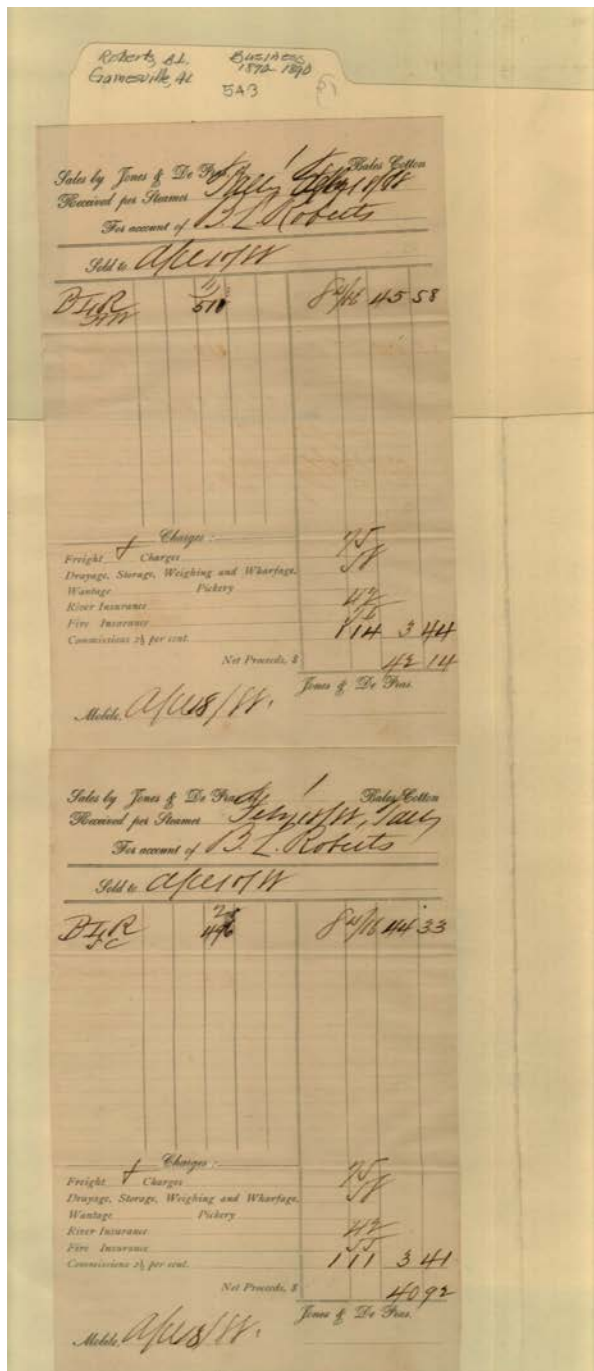 Roberts, B.L. Business
Gainesville, AL 1872-1890
5A3
Sales by Jones & De Fras of 1 Bales Cotton
Received per Steamer Tally
For account of B. L. Roberts
Sold to
B L R 510 8 15/16 45 58
Charges:
Freight Charges 75
Drayage, Storage, Weighing and Wharfage, 58
Wantage Pickery
River Insurance 42
Fire Insurance
Commissions 2½ per cent. 1 14 3 44
Net Proceeds, $ 42 14
Jones & De Fras.
Mobile,
Sales by Jones & De Fras of 1 Bales Cotton
Received per Steamer
For account of B. L. Roberts
Sold to
B L R 496 44 33
Charges:
Freight Charges 75
Drayage, Storage, Weighing and Wharfage, 58
Wantage Pickery
River Insurance 42
Fire Insurance 55
Commissions 2½ per cent. 1 11 3 41
Net Proceeds, $ 40 92
Jones & De Fras.
Mobile,